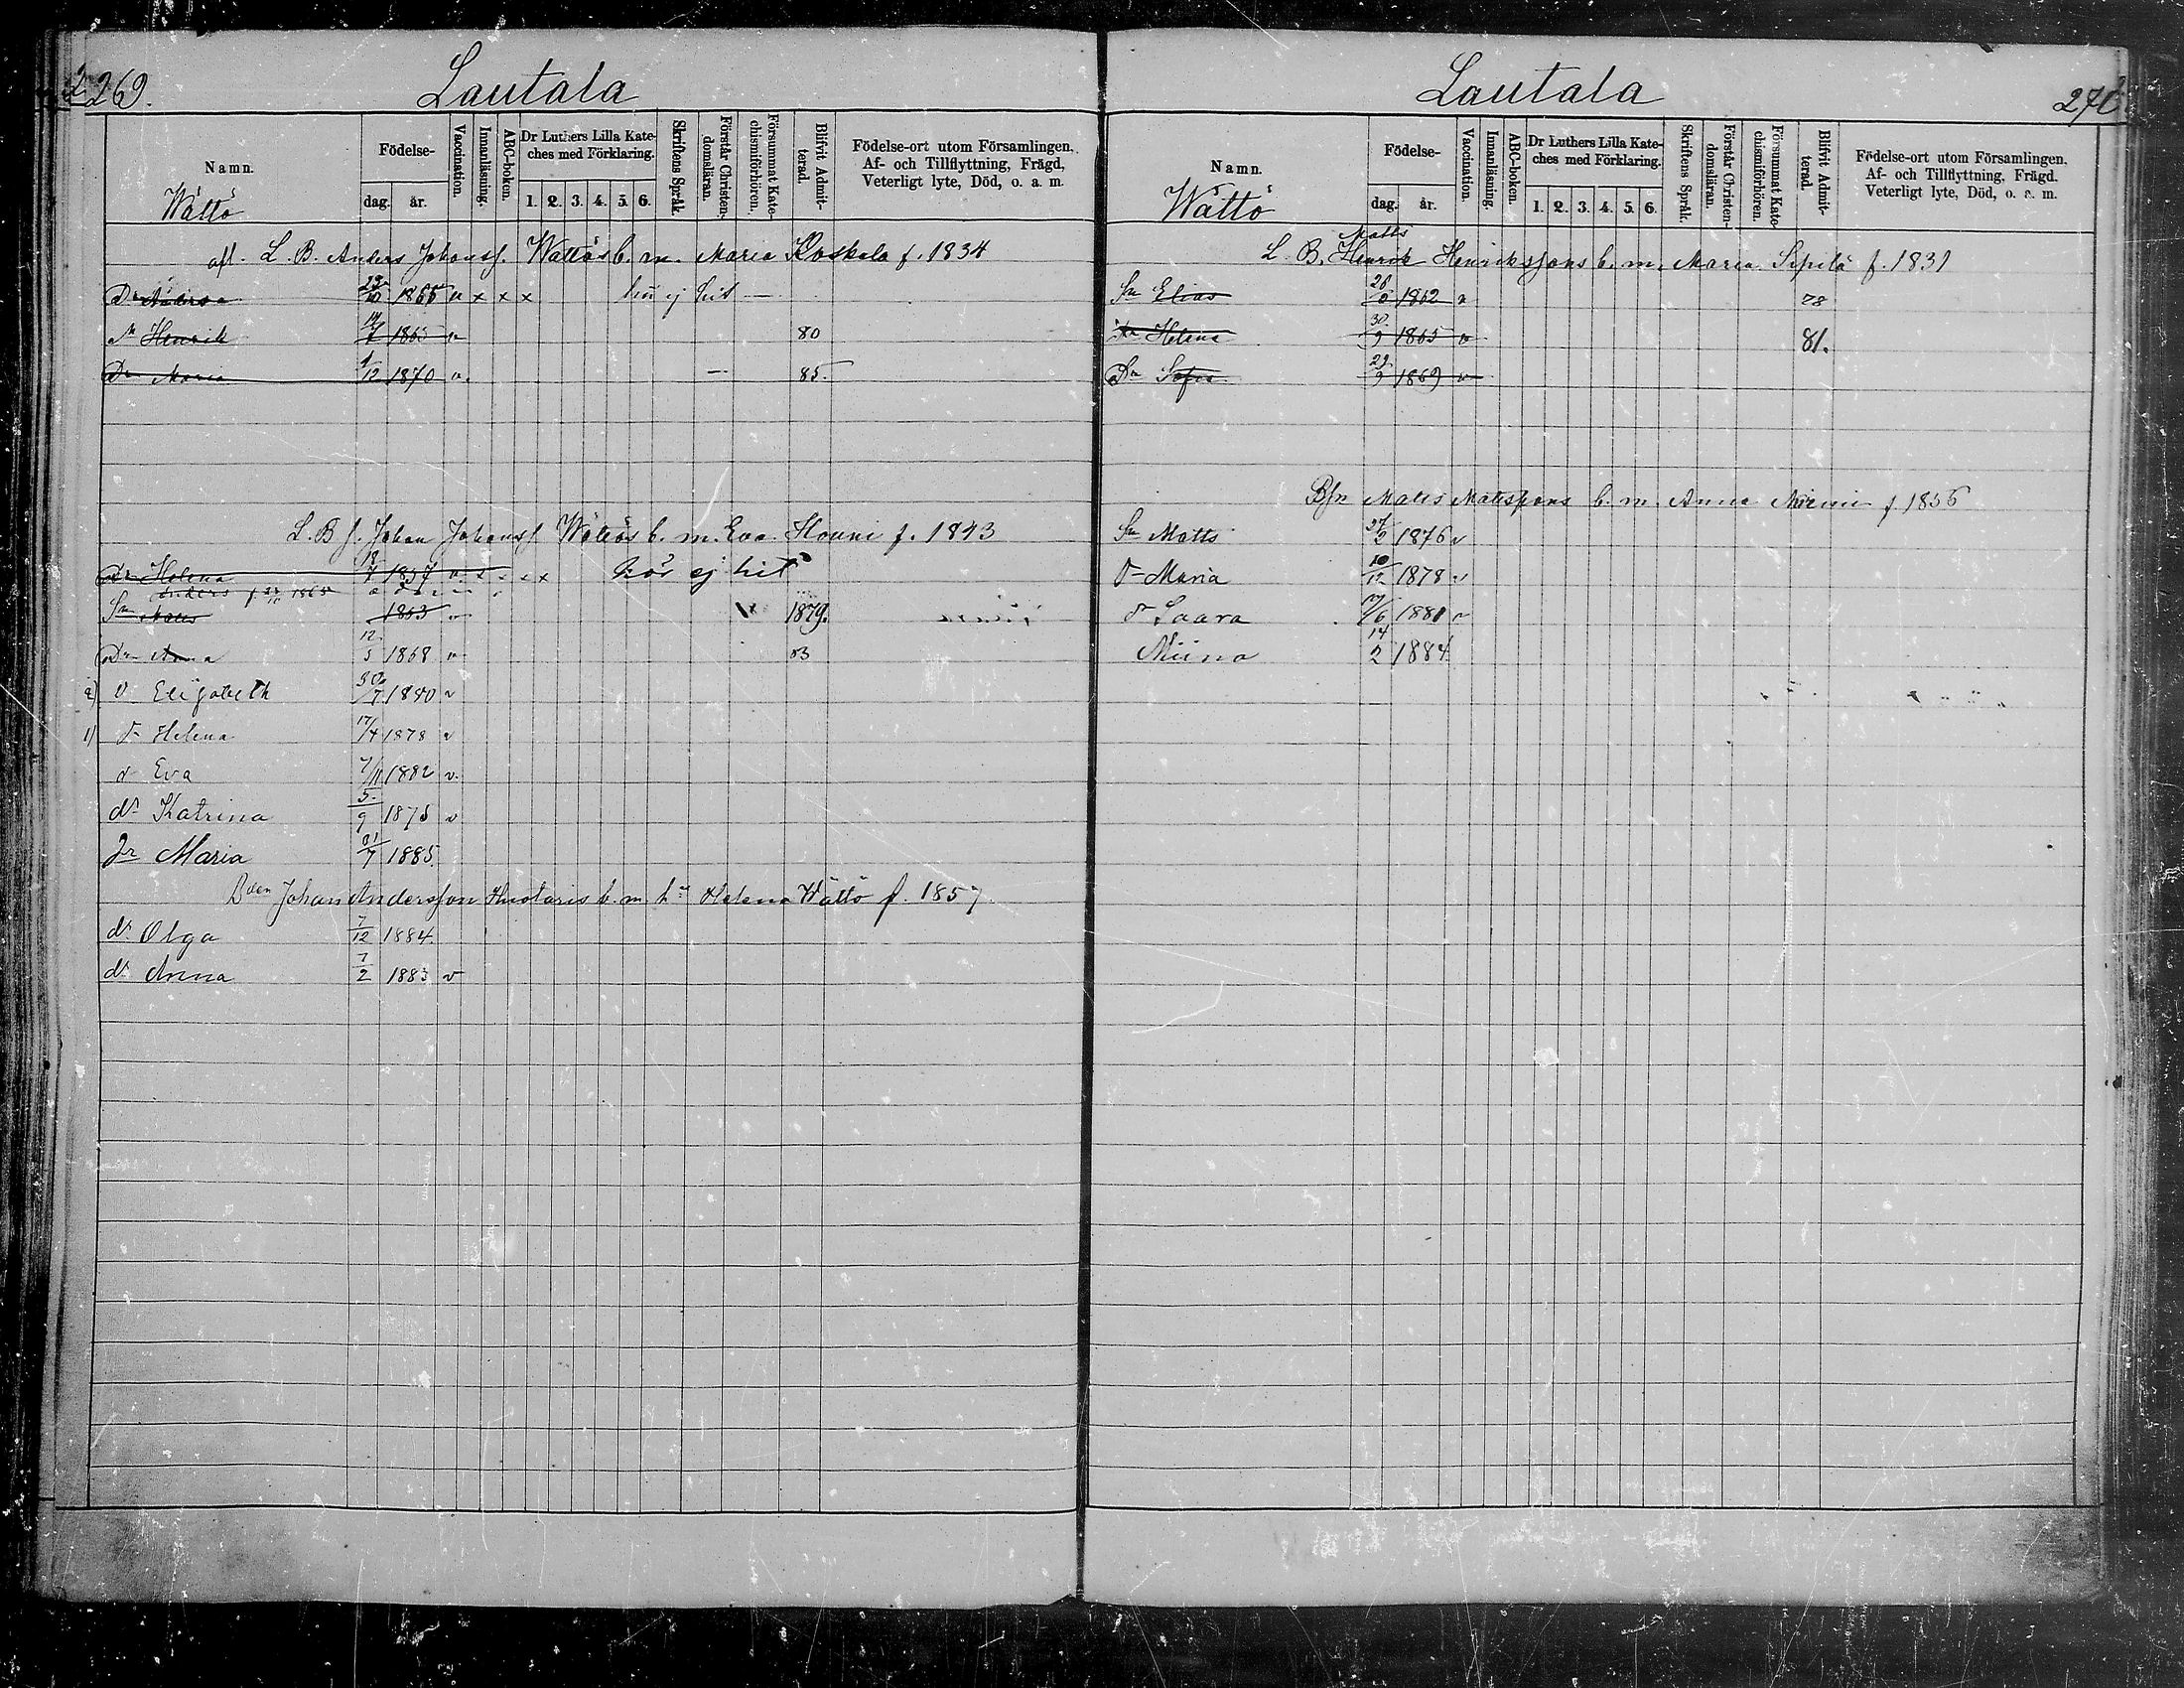 269.
Lautala
Namn.
Födelse-
dag.
år.
Vaccination.
Innanläsning.
ABC-boken.
Dr Luthers Lilla Kate-
ches med Förklaring.
1. 2. 3. 4. 5. 6.
Skriftens Språk.
Förstår Christen-
domsläran.
Försummat Kate-
chismiförhören.
Blifvit Admit-
terad.
Födelse-ort utom Församlingen,
Af- och Tillflyttning, Frägd,
Veterligt lyte, Död, o. a. m.
Wättö
afl. L. B. Anders Johanss. Wättös b. m. Maria Koskela f. 1834
Dr 23/10 1855 v x x x ej hit —
Henrik 7 1865 v 80
Dr Maria 1/12 1870 v. — 85.
L. B. f. Johan Johanss Wättös b. m. Eva Houni f. 1843
Dr Helena 1857 v x x x x hör ej hit
Anders f. 1865
Sn Matts 1863 v 1879.
Dr Anna 12/5 1868 v 83
2) d Elisabeth 30/7 1880 v
1) dr Helena 17/4 1878 v
d Eva 7/11 1882 v.
dr Katrina 5/9 1875 v
Maria 7 1885.
Bden Johan Andersson Huotaris b. m. h. Helena Wättö f. 1857
dr Olga 7/12 1884.
dr Anna 7/2 1883 v
270
Lautala
Namn.
Födelse-
dag.
år.
Vaccination.
Innanläsning.
ABC-boken.
Dr Luthers Lilla Kate-
ches med Förklaring.
1. 2. 3. 4. 5. 6.
Skriftens Språk.
Förstår Christen-
domsläran.
Försummat Kate-
chismiförhören.
Blifvit Admit-
terad.
Födelse-ort utom Församlingen,
Af- och Tillflyttning, Frägd.
Veterligt lyte, Död, o. a. m.
Wättö
Matts
L. B. Henrik Henrikssons b. m. Maria Sipilä f. 1831
Sn Elias 26 1862 v 78
Dr Helena 30/9 1865 v 81.
Dr Sofia 29/9 1869 v
Bsn Matts Mattssons b. m. Anna Niemi f. 1856
Sn Matts 27/2 1876 v
d Maria 10/12 1878 v
d Saara 17/6 1881 v
Miina 14/2 1884.